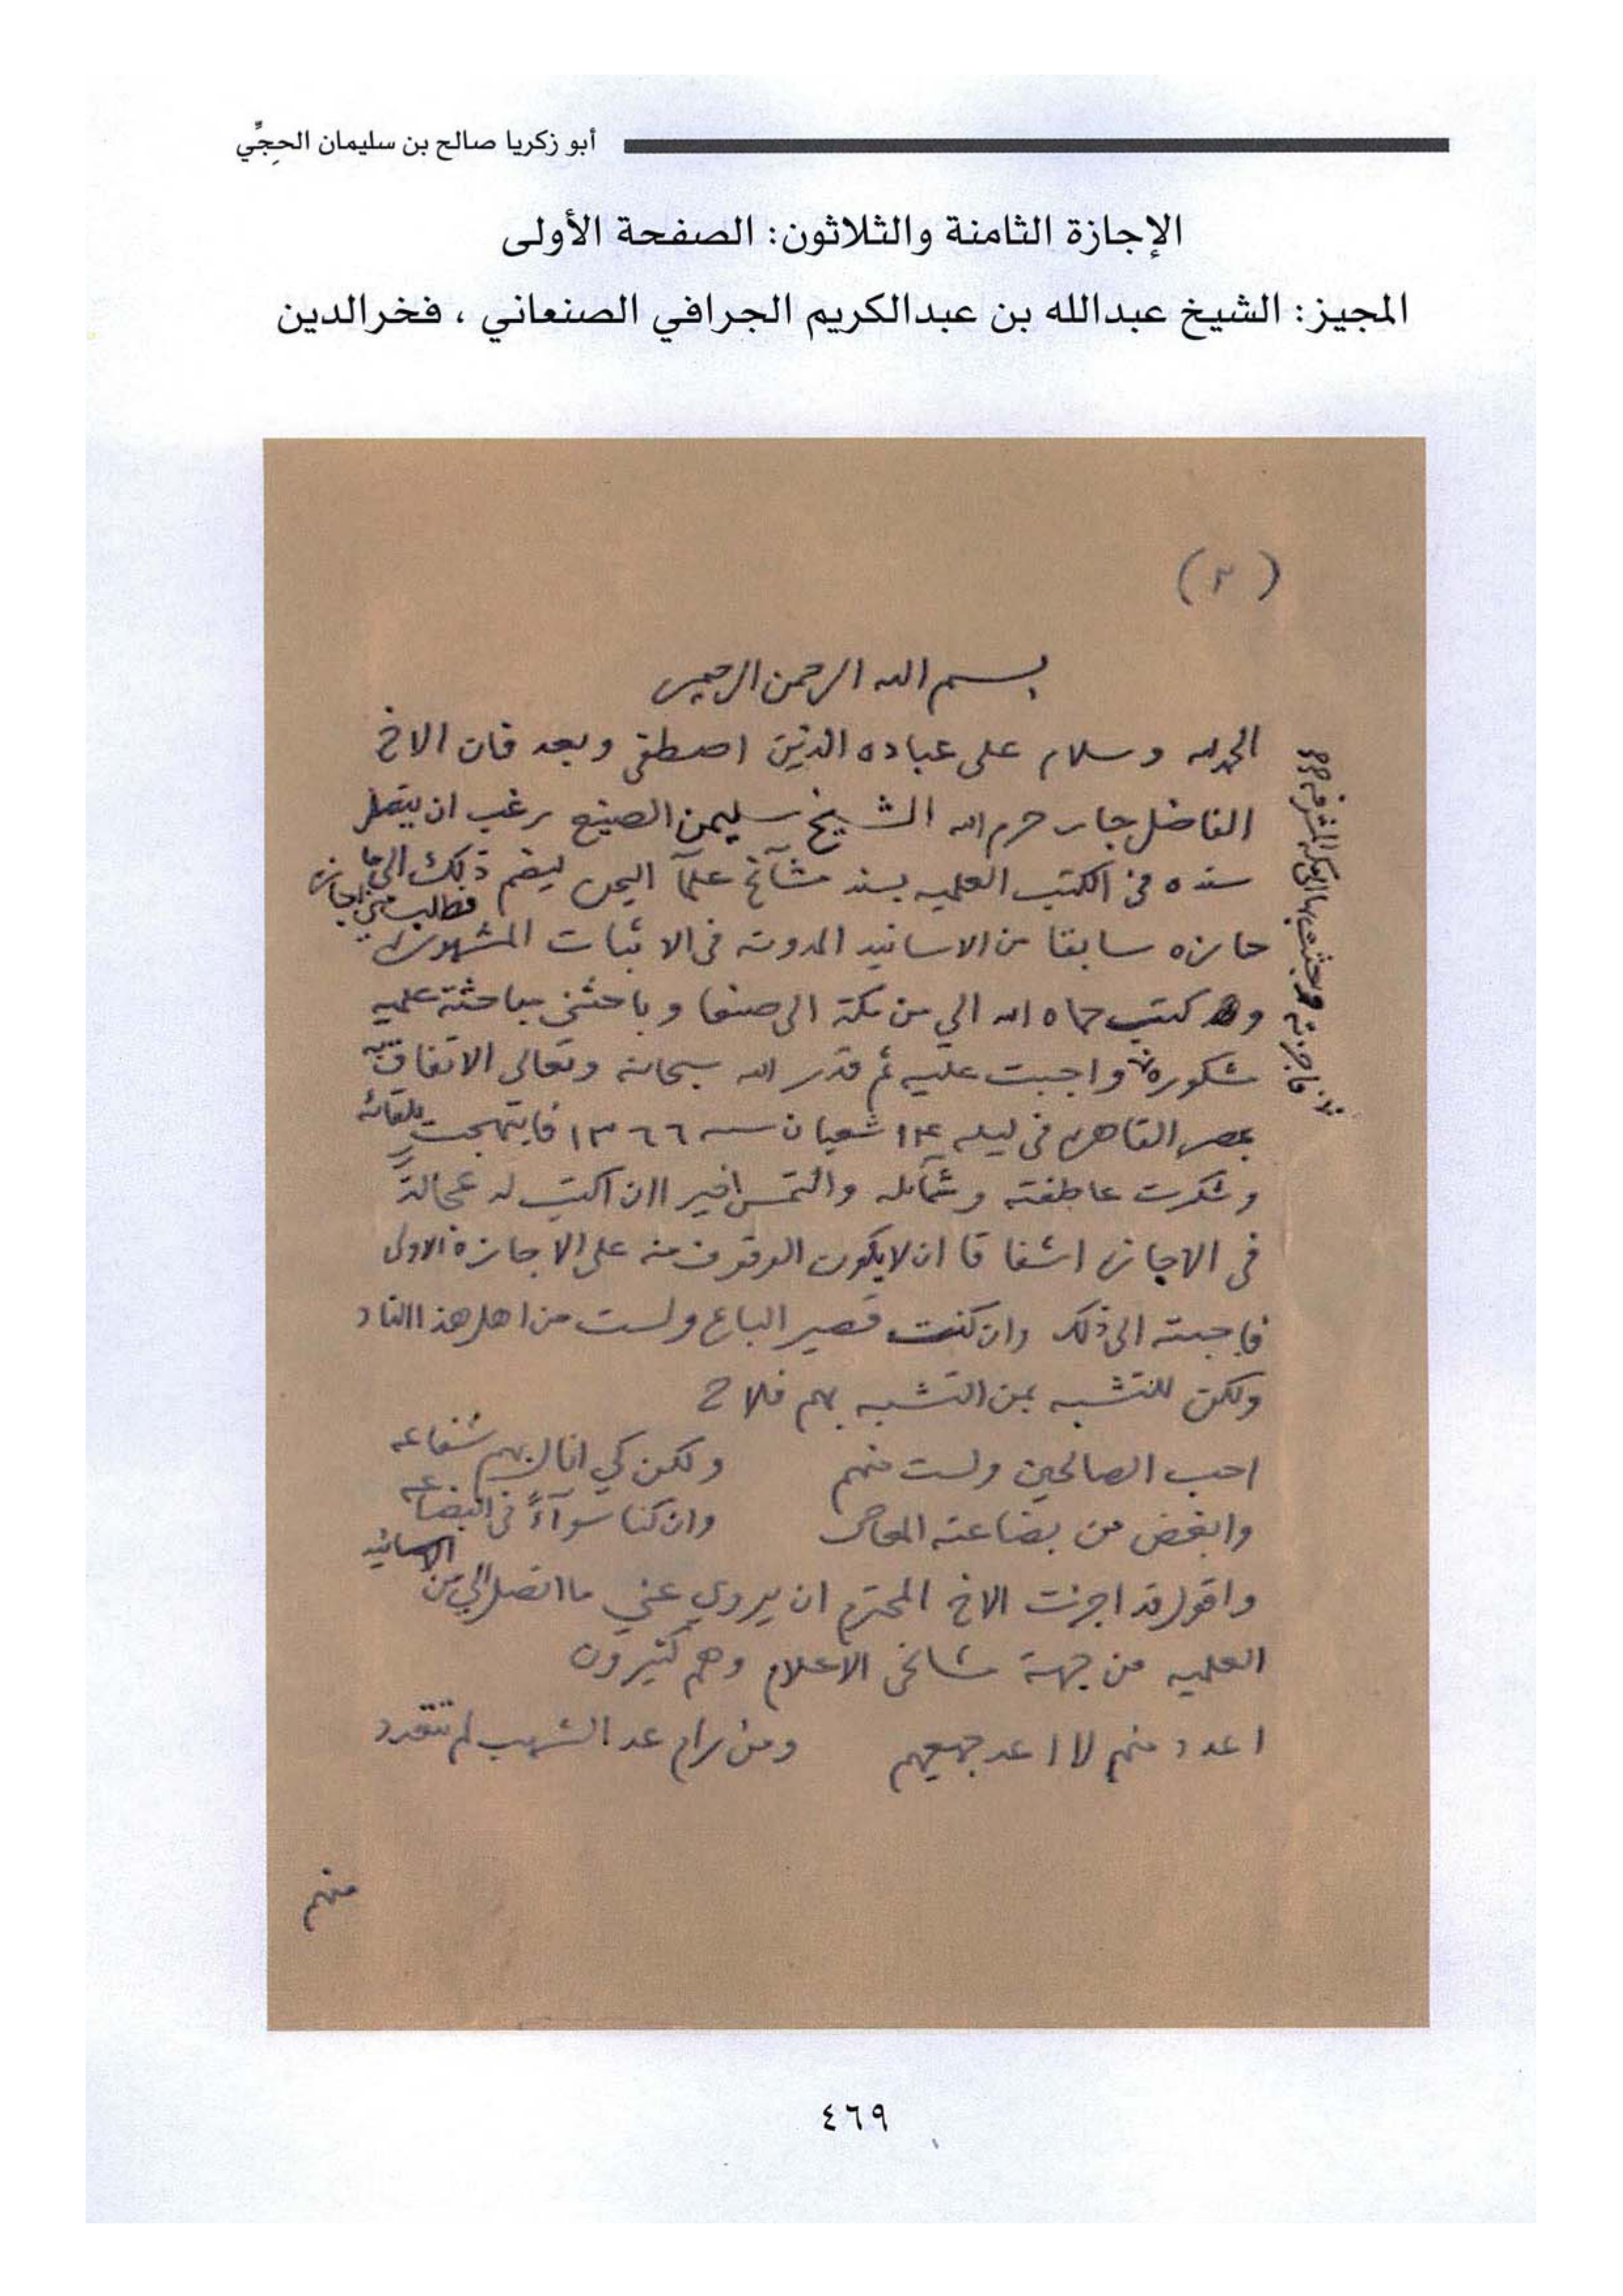 أبو زكريا صالح بن سليمان الحجِّي
الإجازة الثامنة والثلاثون: الصفحة الأولى
المجيز: الشيخ عبدالله بن عبدالكريم الجرافي الصنعاني ، فخرالدين
(٢)
بسم الله الرحمن الرحيم
الحمد لله وسلام على عباده الذين اصطفى وبعد فان الاخ
الفاضل جار حرم الله الشيخ سليمن الصنيع رغب ان يتصل
سنده في الكتب العلميه بسند مشآئخ علمآ اليمن ليضم ذلك الى ما
فطلب مني اجازة
حازه سابقا من الاسانيد المدونة في الاثبات المشهورة
وكتب حماه الله الي من مكة الى صنعا وباحثني مباحثة علميه
مشكورة واجبت عليه ثم قدر الله سبحانه وتعالى الاتفاق به
بمصر القاهرة في ليلة ١٤ شعبان سنة ١٣٦٦ فابتهجت بلقائه
وشكرت عاطفته وشمآئله والتمس اخيرا ان اكتب له عجالةً
في الاجازة اشفاقا ان لا يكون الوقوف منه على الاجازة الاولى
فاجبته الى ذلك وان كنت قصير الباع ولست من اهل هذا الناد
ولكن للتشبه بمن التشبه بهم فلاح
احب الصالحين ولست منهم ولكن كي انال بهم شفاعه
وابغض من بضاعته المعاصي وان كنا سوآءً في البضاعه
واقول قد اجزت الاخ المحترم ان يروي عني ما اتصل الي من الاسانيد
العلميه من جهة مشائخي الاعلام وهم كثيرون
اعدد منهم لا اعد جميعهم ومن رام عد الشهب لم تتعدد
منهم
٤٦٩